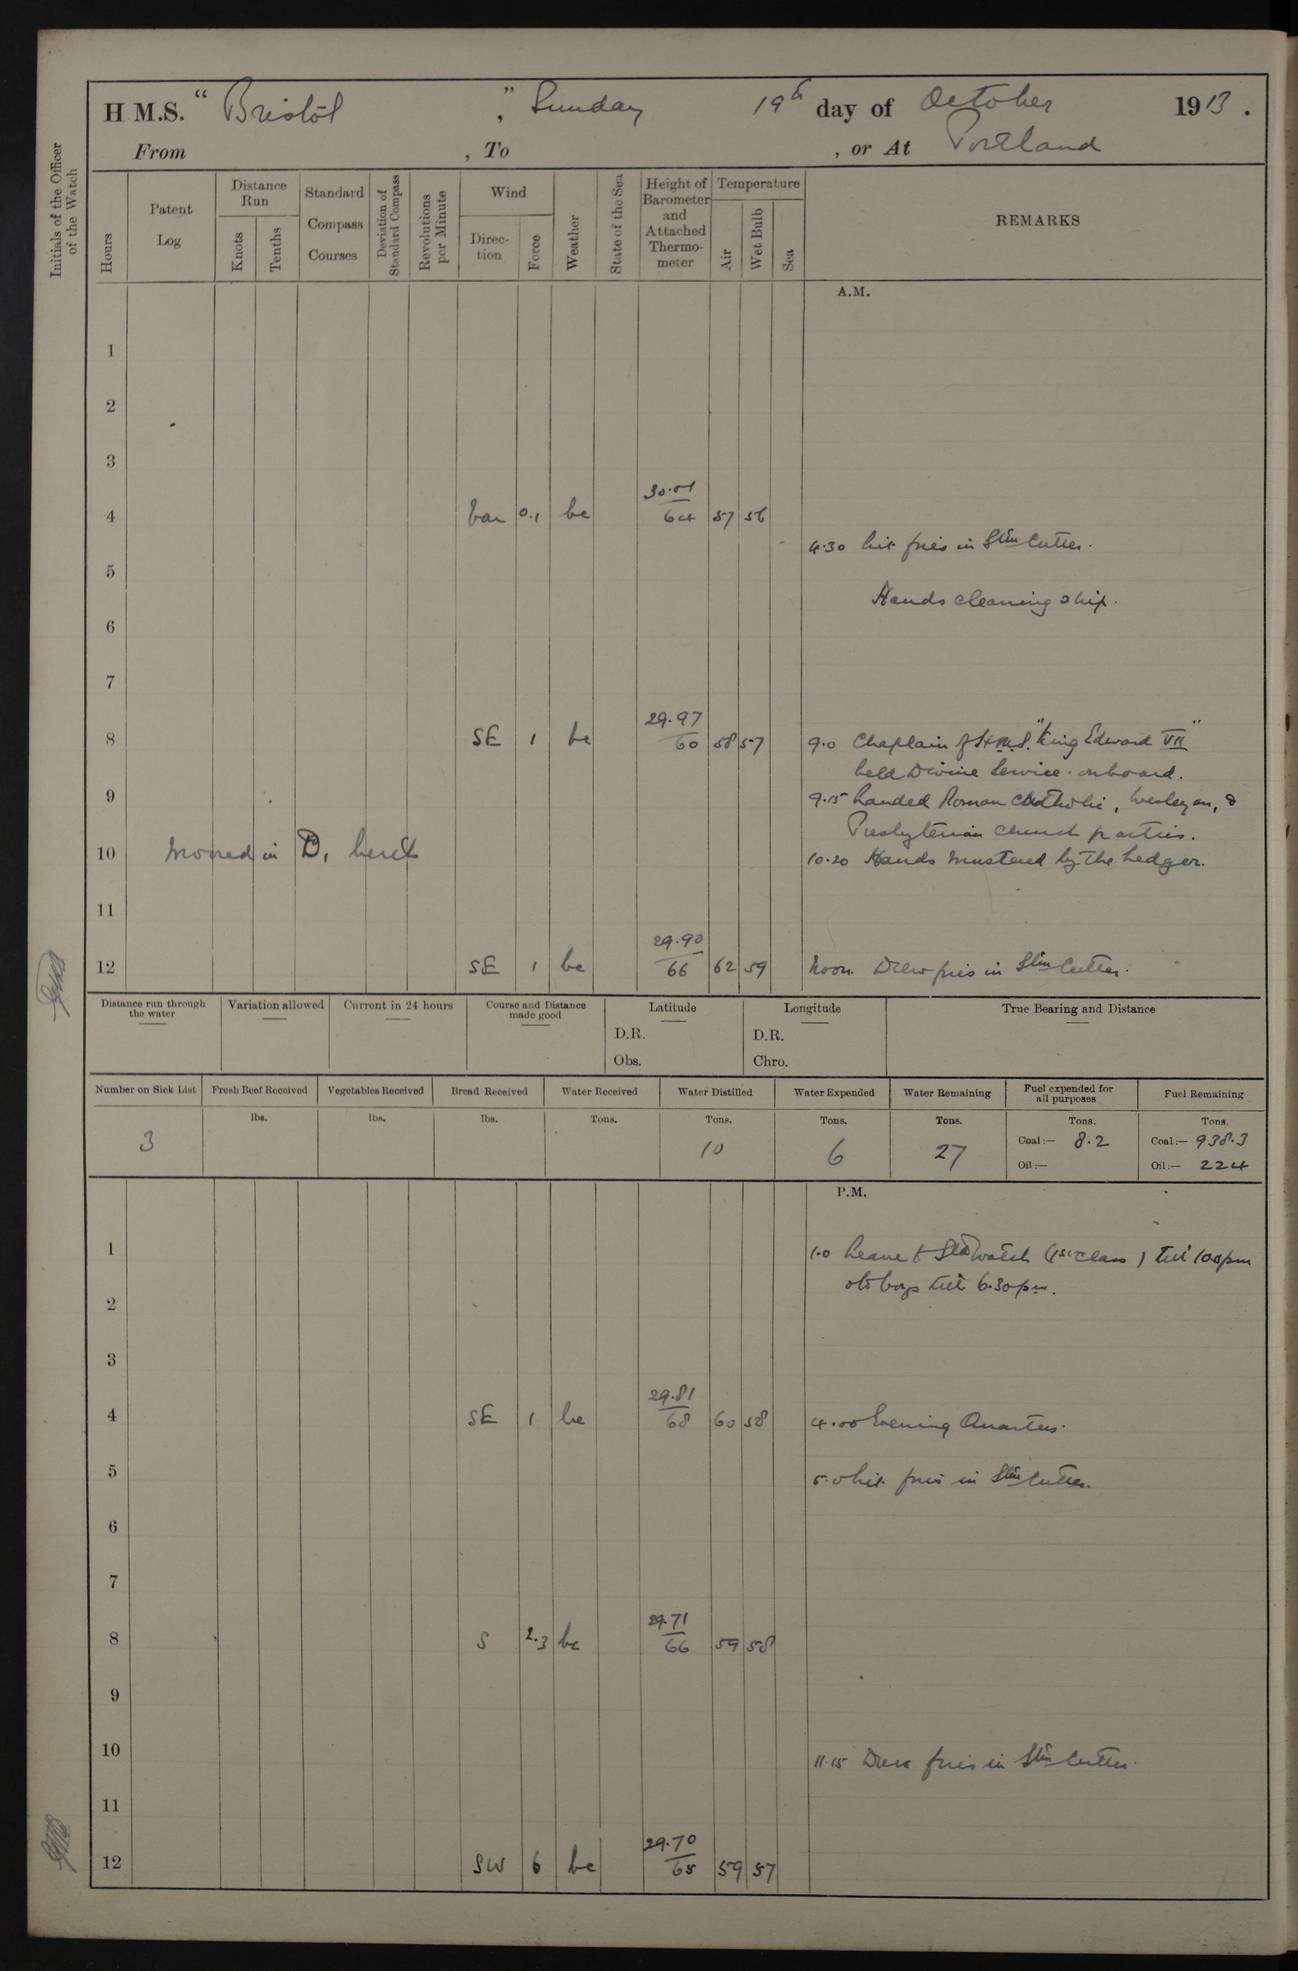 H.M.S. "Bristol", Sunday 19th day of October 1913.
From , To , or At Portland
Initials of the Officer of the Watch
Hours
Patent Log
Distance Run
Knots
Tenths
Standard Compass Courses
Deviation of Standard Compass
Revolutions per Minute
Wind
Direction
Force
Weather
State of the Sea
Height of Barometer and Attached Thermometer
Temperature
Air
Wet Bulb
Sea
REMARKS
A.M.
1
2
3
4 Var 0.1 bc 30.01/64 57 56
4.30 Lit fires in Stm Cutter.
5
Hands cleaning ship.
6
7
8 SE 1 bc 29.97/60 58 57 9.0 Chaplain of H.M.S. "King Edward VII"
held Divine Service onboard.
9 9.15 Landed Roman Catholic, Wesleyan, &
Presbyterian church parties.
10 Moored in D, berth 10.20 Hands mustered by the Ledger.
11
12 SE 1 bc 29.90/66 62 59 Noon. Drew fires in Stm Cutter.
Distance run through the water
Variation allowed
Current in 24 hours
Course and Distance made good
Latitude
D.R.
Obs.
Longitude
D.R.
Chro.
True Bearing and Distance
Number on Sick List 3
Fresh Beef Received lbs.
Vegetables Received lbs.
Bread Received lbs.
Water Received Tons.
Water Distilled Tons. 10
Water Expended Tons. 6
Water Remaining Tons. 27
Fuel expended for all purposes Tons.
Coal:— 8.2
Oil:—
Fuel Remaining Tons.
Coal:— 938.3
Oil:— 224
P.M.
1 1.0 Leave to Stbd Watch (1st Class) till 10.0pm
boys till 6.30pm.
2
3
4 SE 1 bc 29.81/68 60 58 4.00 Evening Quarters.
5 5.0 Lit fires in Stm Cutter.
6
7
8 S 2.3 bc 29.71/66 59 58
9
10 11.15 Drew fires in Stm Cutter.
11
12 SW 6 bc 29.70/65 59 57